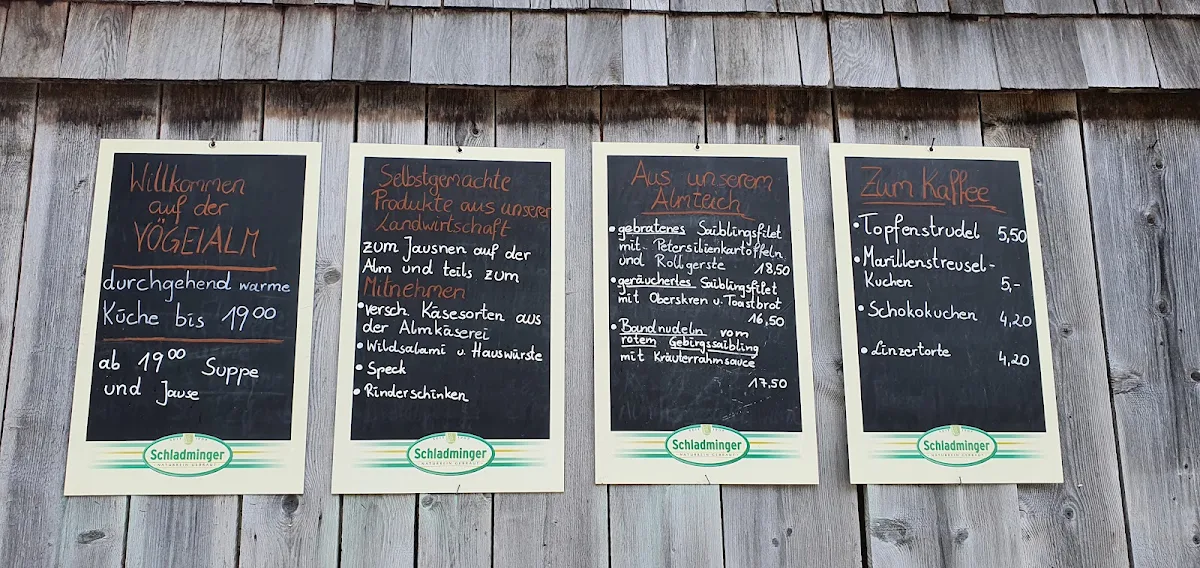 Willkommen
auf der
VÖGEIALM
durchgehend warme
Küche bis 19⁰⁰
ab 19⁰⁰ Suppe
und Jause
Schladminger
NATURREIN GEBRAUT
Selbstgemachte
Produkte aus unserer
Landwirtschaft
zum Jausnen auf der
Alm und teils zum
Mitnehmen
• versch. Käsesorten aus
der Almkäserei
• Wildsalami u. Hauswürste
• Speck
• Rinderschinken
Schladminger
NATURREIN GEBRAUT
Aus unserem
Almteich
• gebratenes Saiblingsfilet
mit Petersilienkartoffeln
und Rollgerste 18,50
• geräuchertes Saiblingsfilet
mit Oberskren u. Toastbrot
16,50
• Bandnudeln vom
rotem Gebirgssaibling
mit Kräuterrahmsauce
17,50
Schladminger
NATURREIN GEBRAUT
Zum Kaffee
• Topfenstrudel 5,50
• Marillenstreusel-
Kuchen 5,-
• Schokokuchen 4,20
• Linzertorte 4,20
Schladminger
NATURREIN GEBRAUT